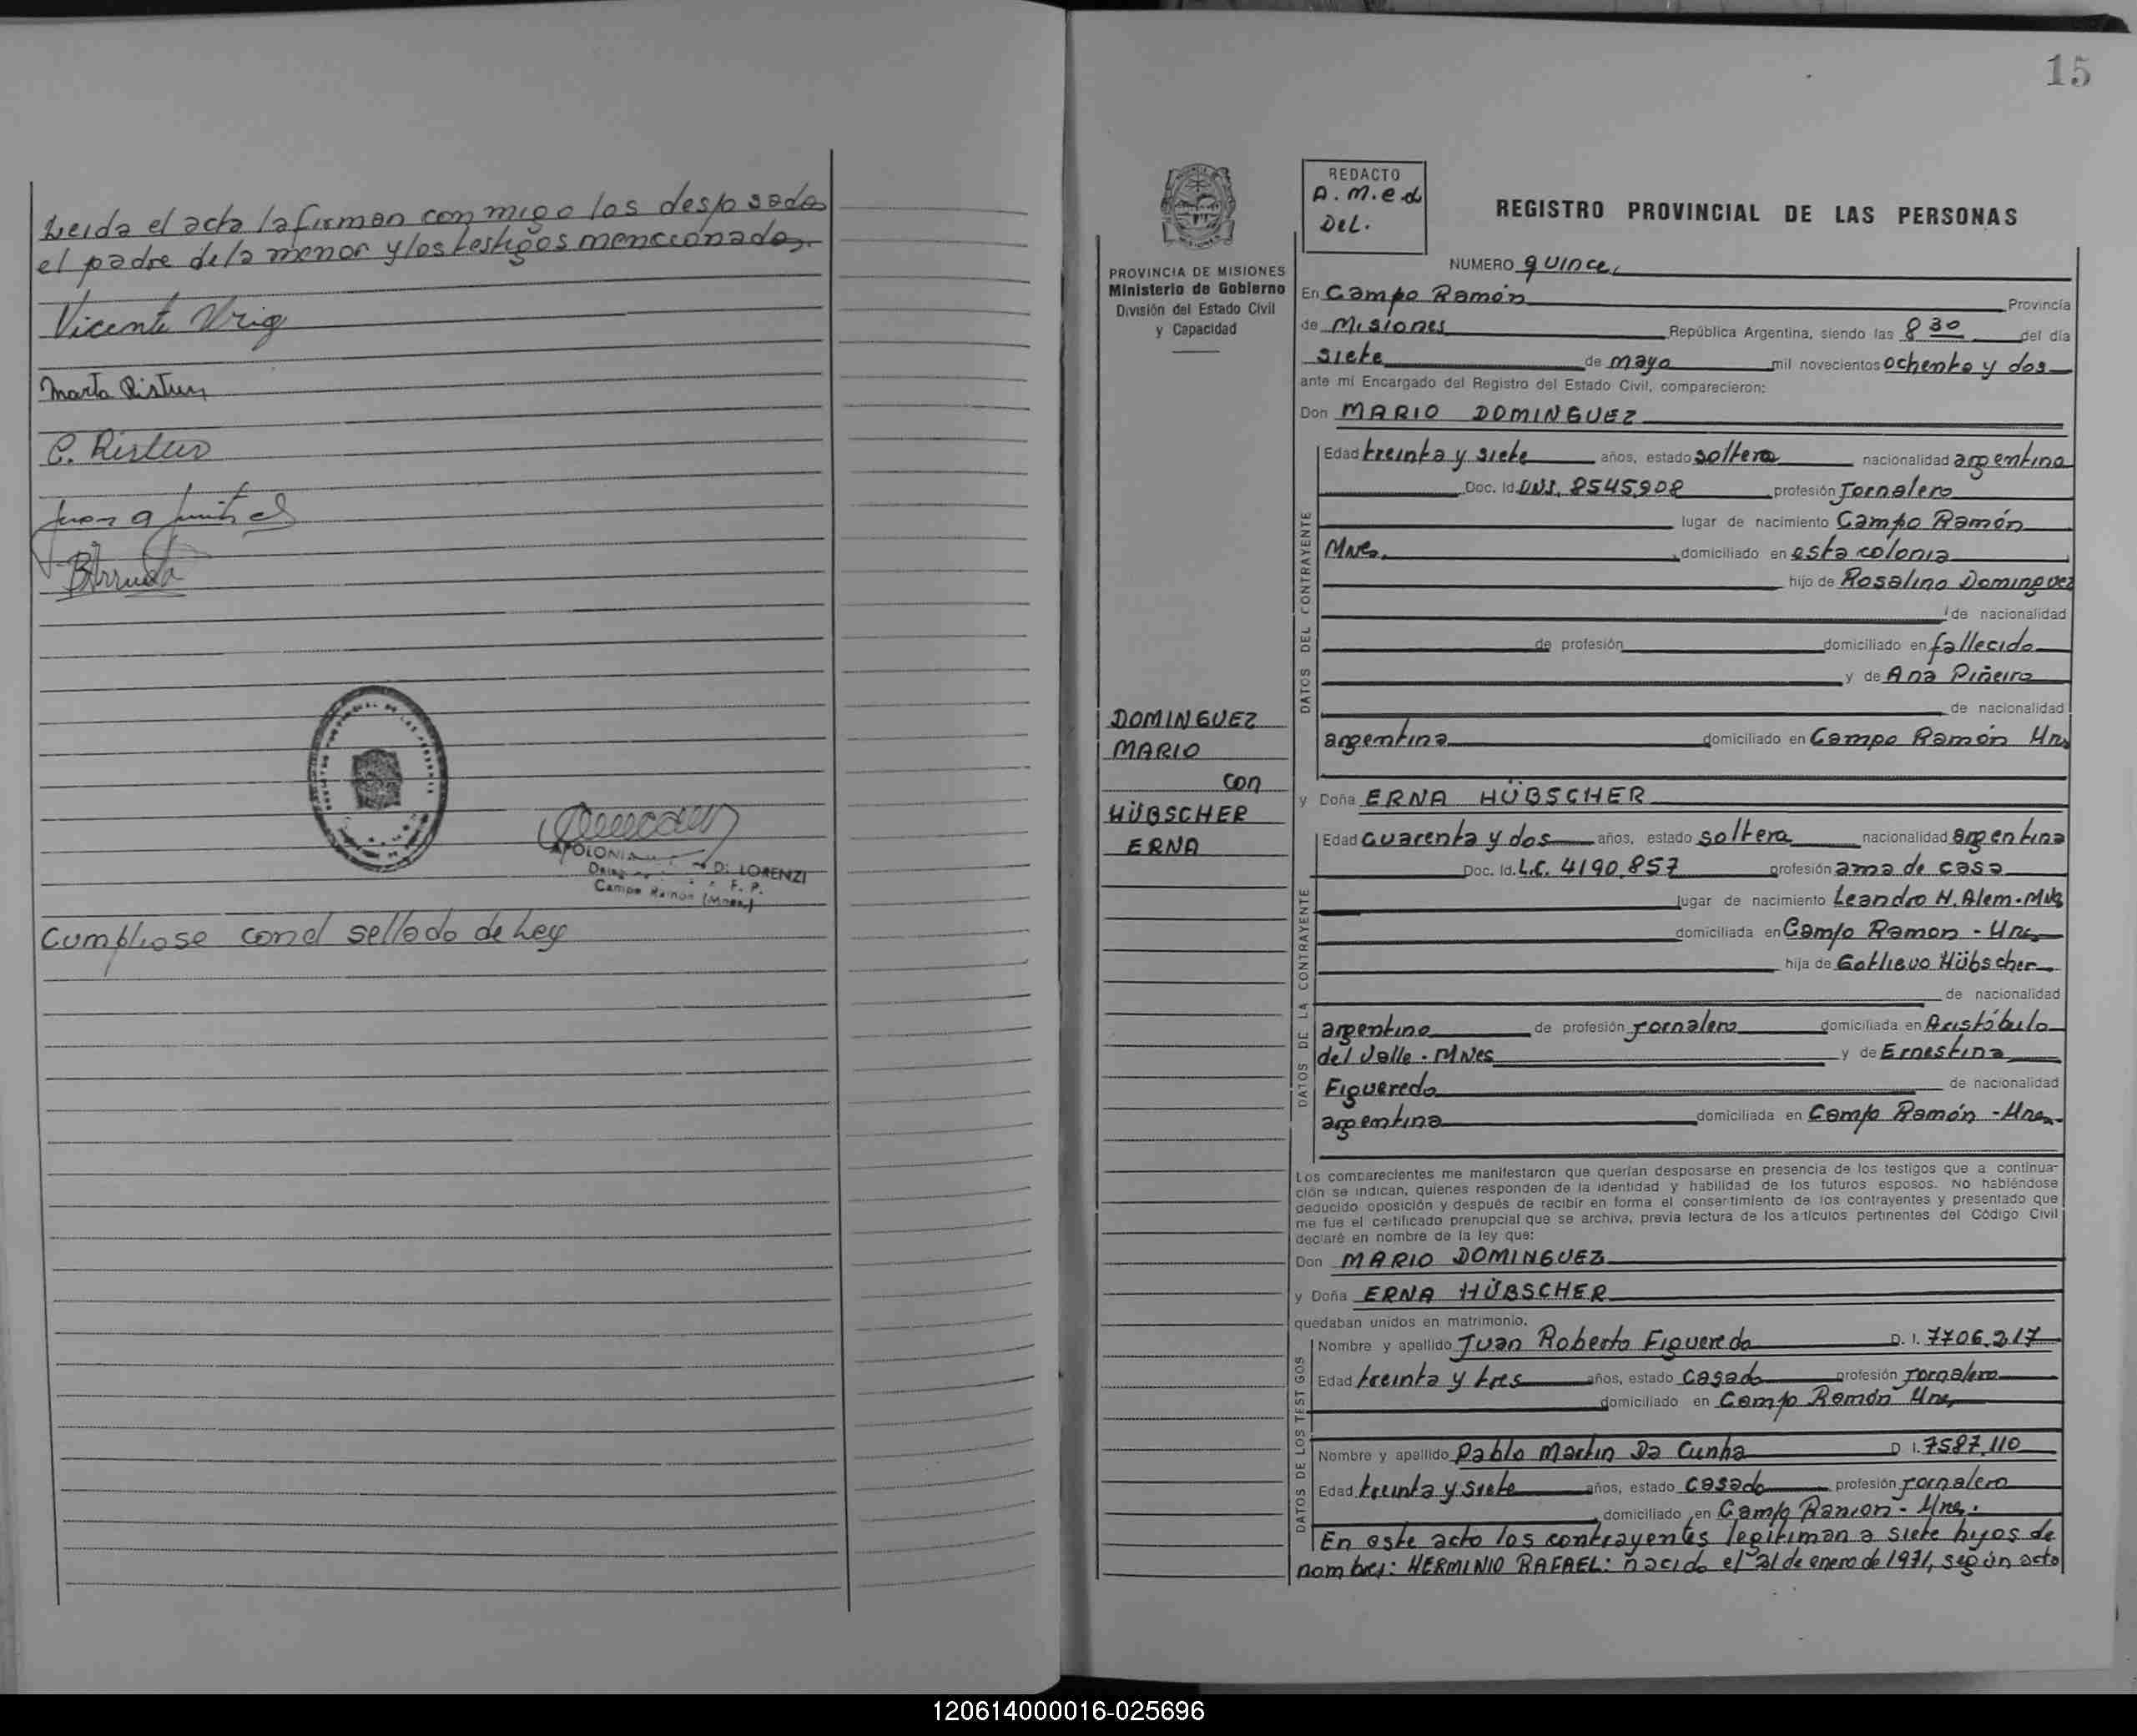 Leida el acta la firman conmigo los desposados
el padre de la menor y los testigos mencionados.
Vicente
Marta
C.
Juan
Cumpliose con el sellado de Ley
D: LORENZI
Campo Ramón (Mnes.)
15
REDACTO
A.M.e.d
DEL.
REGISTRO PROVINCIAL DE LAS PERSONAS
PROVINCIA DE MISIONES
Ministerio de Gobierno
División del Estado Civil
y Capacidad
DOMINGUEZ
MARIO
con
HÜBSCHER
ERNA
NUMERO quince,
En Campo Ramón Provincia
de Misiones República Argentina, siendo las 8 30 del día
siete de mayo mil novecientos ochenta y dos
ante mi Encargado del Registro del Estado Civil, comparecieron:
Don MARIO DOMINGUEZ
DATOS DEL CONTRAYENTE
Edad treinta y siete años, estado soltero nacionalidad argentina
Doc. Id. DNI. 8545908 profesión Jornalero
lugar de nacimiento Campo Ramón
Mnes. domiciliado en esta colonia
hijo de Rosalino Dominguez
de nacionalidad
de profesión domiciliado en fallecido
y de Ana Piñeiro
de nacionalidad
argentina domiciliado en Campo Ramón Mns
y Doña ERNA HÜBSCHER
DATOS DE LA CONTRAYENTE
Edad cuarenta y dos años, estado soltera nacionalidad argentina
Doc. Id. L.C. 4190.857 profesión ama de casa
lugar de nacimiento Leandro N. Alem-Mns
domiciliada en Campo Ramon - Mns
hija de Gotlievo Hübscher
de nacionalidad
argentino de profesión Jornalero domiciliada en Aristóbulo
del Valle - MNes y de Ernestina
Figueredo de nacionalidad
argentina domiciliada en Campo Ramón - Mns
Los comparecientes me manifestaron que querían desposarse en presencia de los testigos que a continua-
ción se indican, quienes responden de la identidad y habilidad de los futuros esposos. No habiéndose
deducido oposición y después de recibir en forma el consertimiento de los contrayentes y presentado que
me fue el certificado prenupcial que se archiva, previa lectura de los artículos pertinentes del Código Civil
declaré en nombre de la ley que:
Don MARIO DOMINGUEZ
y Doña ERNA HÜBSCHER
quedaban unidos en matrimonio.
DATOS DE LOS TESTIGOS
Nombre y apellido Juan Roberto Figueredo D. I. 7706.217
Edad treinta y tres años, estado casado profesión Jornalero
domiciliado en Campo Ramón Mns
Nombre y apellido Pablo Martin Da Cunha D I. 7587.110
Edad treinta y siete años, estado casado profesión Jornalero
domiciliado en Campo Ramon - Mns.
En este acto los contrayentes legitiman a siete hijos de
nombres: HERMINIO RAFAEL: nacido el 21 de enero de 1971, según acto
120614000016-025696